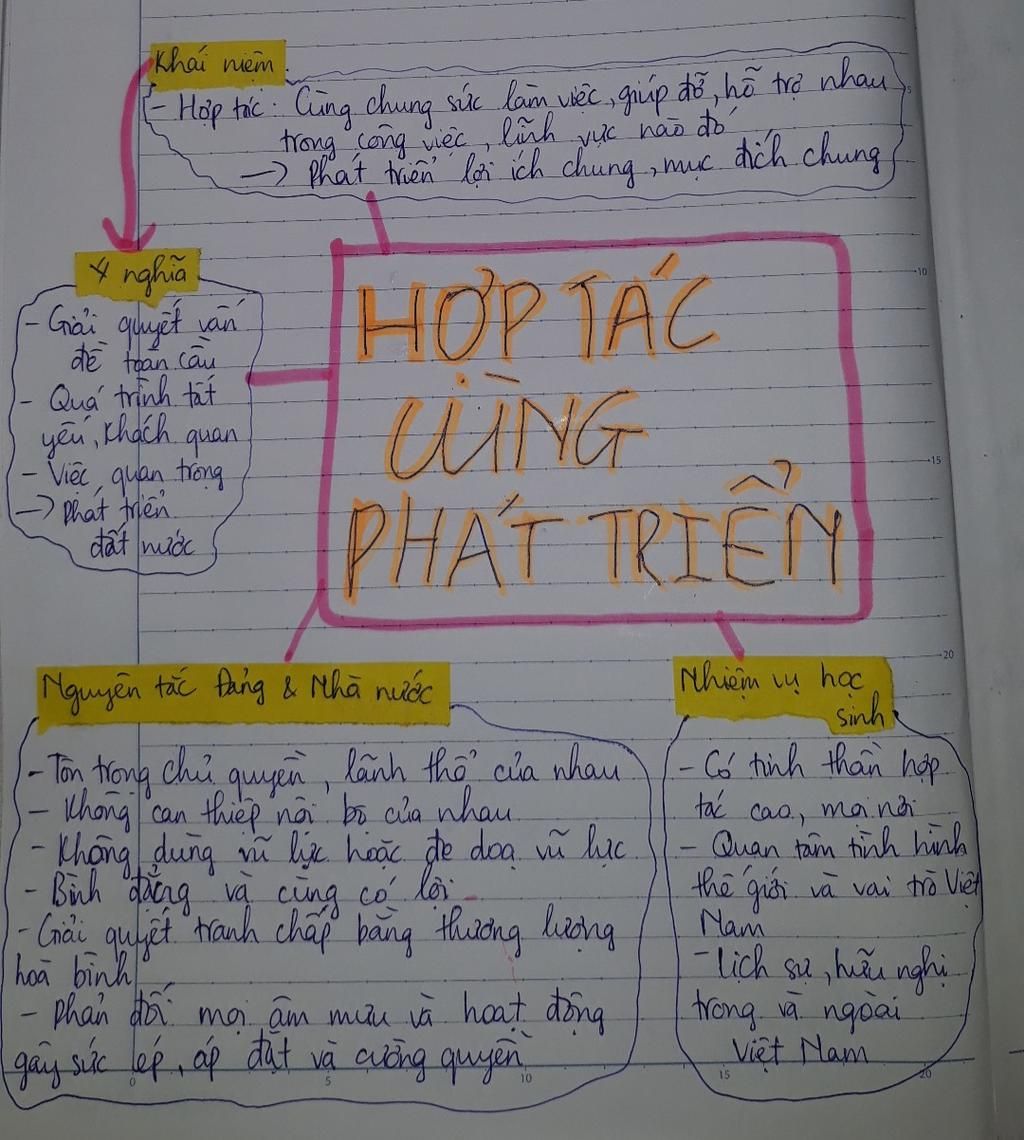 Khái niệm
- Hợp tác: Cùng chung sức làm việc, giúp đỡ, hỗ trợ nhau
trong công việc, lĩnh vực nào đó
→ Phát triển lợi ích chung, mục đích chung
Ý nghĩa
- Giải quyết vấn
đề toàn cầu
- Quá trình tất
yếu, khách quan
- Việc quan trọng
→ Phát triển
đất nước
HỢP TÁC
CÙNG
PHÁT TRIỂN
Nguyên tắc Đảng & Nhà nước
- Tôn trọng chủ quyền, lãnh thổ của nhau
- Không can thiệp nội bộ của nhau
- Không dùng vũ lực hoặc đe doạ vũ lực
- Bình đẳng và cùng có lợi
- Giải quyết tranh chấp bằng thương lượng
hoà bình
- Phản đối mọi âm mưu và hoạt động
gây sức ép, áp đặt và cường quyền
Nhiệm vụ học
sinh
- Có tinh thần hợp
tác cao, mọi nơi
- Quan tâm tình hình
thế giới và vai trò Việt
Nam
- Lịch sự, hữu nghị
trong và ngoài
Việt Nam
5
10
15
20
0
5
10
15
20